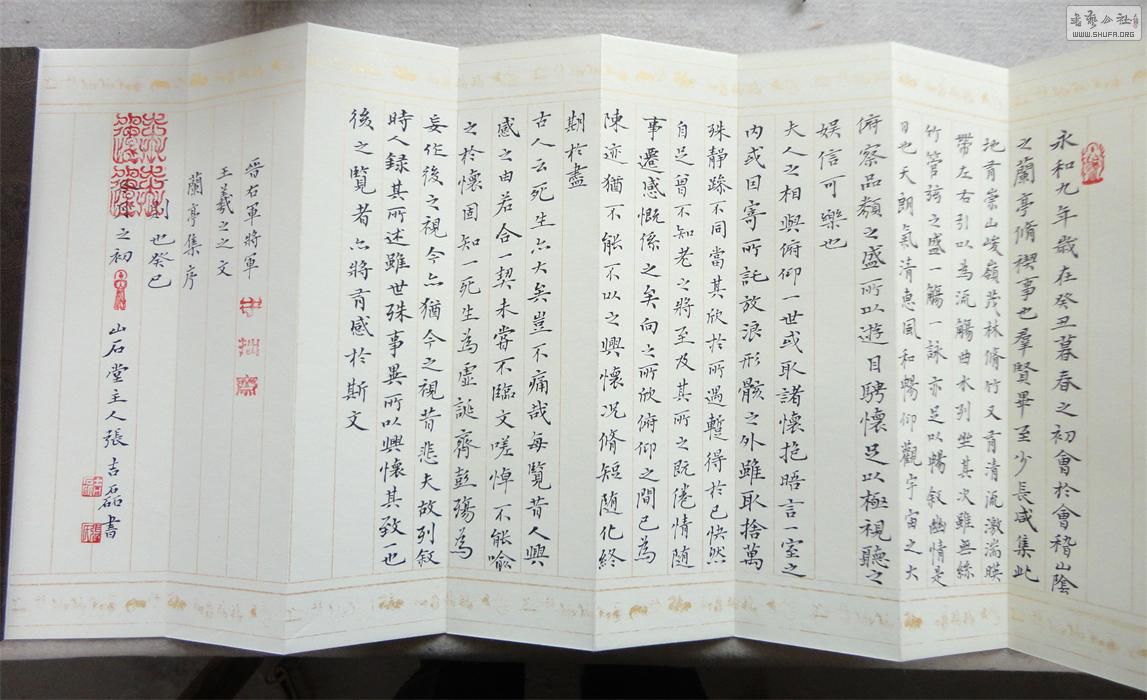 永和九年歲在癸丑暮春之初會於會稽山陰
之蘭亭脩禊事也羣賢畢至少長咸集此
地有崇山峻嶺茂林脩竹又有清流激湍暎
帶左右引以為流觴曲水列坐其次雖無絲
竹管弦之盛一觴一詠亦足以暢敘幽情是
日也天朗氣清惠風和暢仰觀宇宙之大
俯察品類之盛所以遊目騁懷足以極視聽之
娛信可樂也
夫人之相與俯仰一世或取諸懷抱晤言一室之
內或因寄所託放浪形骸之外雖取捨萬
殊靜躁不同當其欣於所遇蹔得於己快然
自足曾不知老之將至及其所之既倦情隨
事遷感慨係之矣向之所欣俯仰之間已為
陳迹猶不能不以之興懷況脩短隨化終
期於盡
古人云死生亦大矣豈不痛哉每覽昔人興
感之由若合一契未嘗不臨文嗟悼不能喻
之於懷固知一死生為虛誕齊彭殤為
妄作後之視今亦猶今之視昔悲夫故列敘
時人錄其所述雖世殊事異所以興懷其致一也
後之覽者亦將有感於斯文
晉右軍將軍
守拙齋
王羲之之文
蘭亭集序
也癸巳
之初 山石堂主人張吉磊書
書藝公社
WWW.SHUFA.ORG